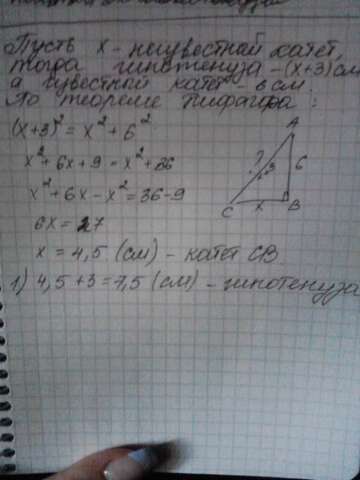 Пусть x - неизвестный катет,
тогда гипотенуза - (x+3) см
а известный катет - 6 см.
По теореме Пифагора:
(x+3)² = x² + 6²
x² + 6x + 9 = x² + 36
x² + 6x - x² = 36 - 9
6x = 27
x = 4,5 (см) - катет CB
1) 4,5 + 3 = 7,5 (см) - гипотенуза
A
6
C x B